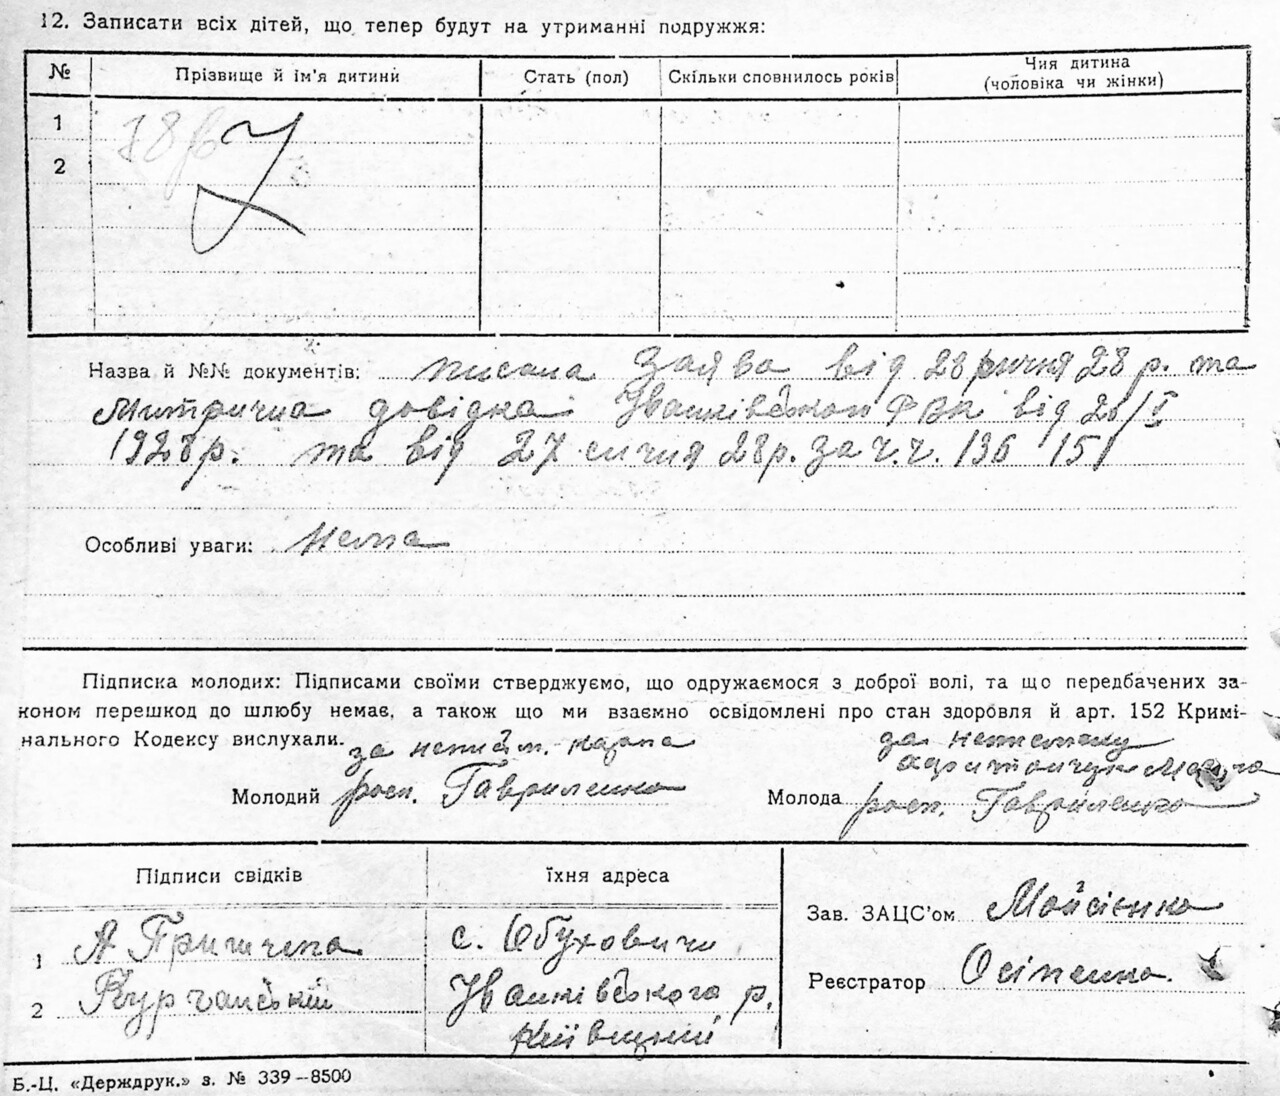 12. Записати всіх дітей, що тепер будут на утриманні подружжя:
№ Прізвище й ім'я дитини Стать (пол) Скільки сповнилось років Чия дитина (чоловіка чи жінки)
1
2
Назва й №№ документів: писана Заява від 28 січня 28 р. та
Митрична довідка Іванківської від 26/I
1928 р. та від 27 січня 28 р. за ч.ч. 136 151
Особливі уваги: Нема
Підписка молодих: Підписами своїми стверджуємо, що одружаємося з доброї волі, та що передбачених за-
коном перешкод до шлюбу немає, а також що ми взаємно освідомлені про стан здоровля й арт. 152 Кримі-
нального Кодексу вислухали.
за неписьм.
Молодий росп. Гавриленко
за неписьмену
Молода росп. Гавриленко
Підписи свідків їхня адреса
1 А Григичепа с. Обуховичи
2 Курчанський Іванківського р.
Київщини
Зав. ЗАЦС'ом Мойсієнко
Реєстратор Осіпенко.
Б.-Ц. «Держдрук.» з. № 339—8500